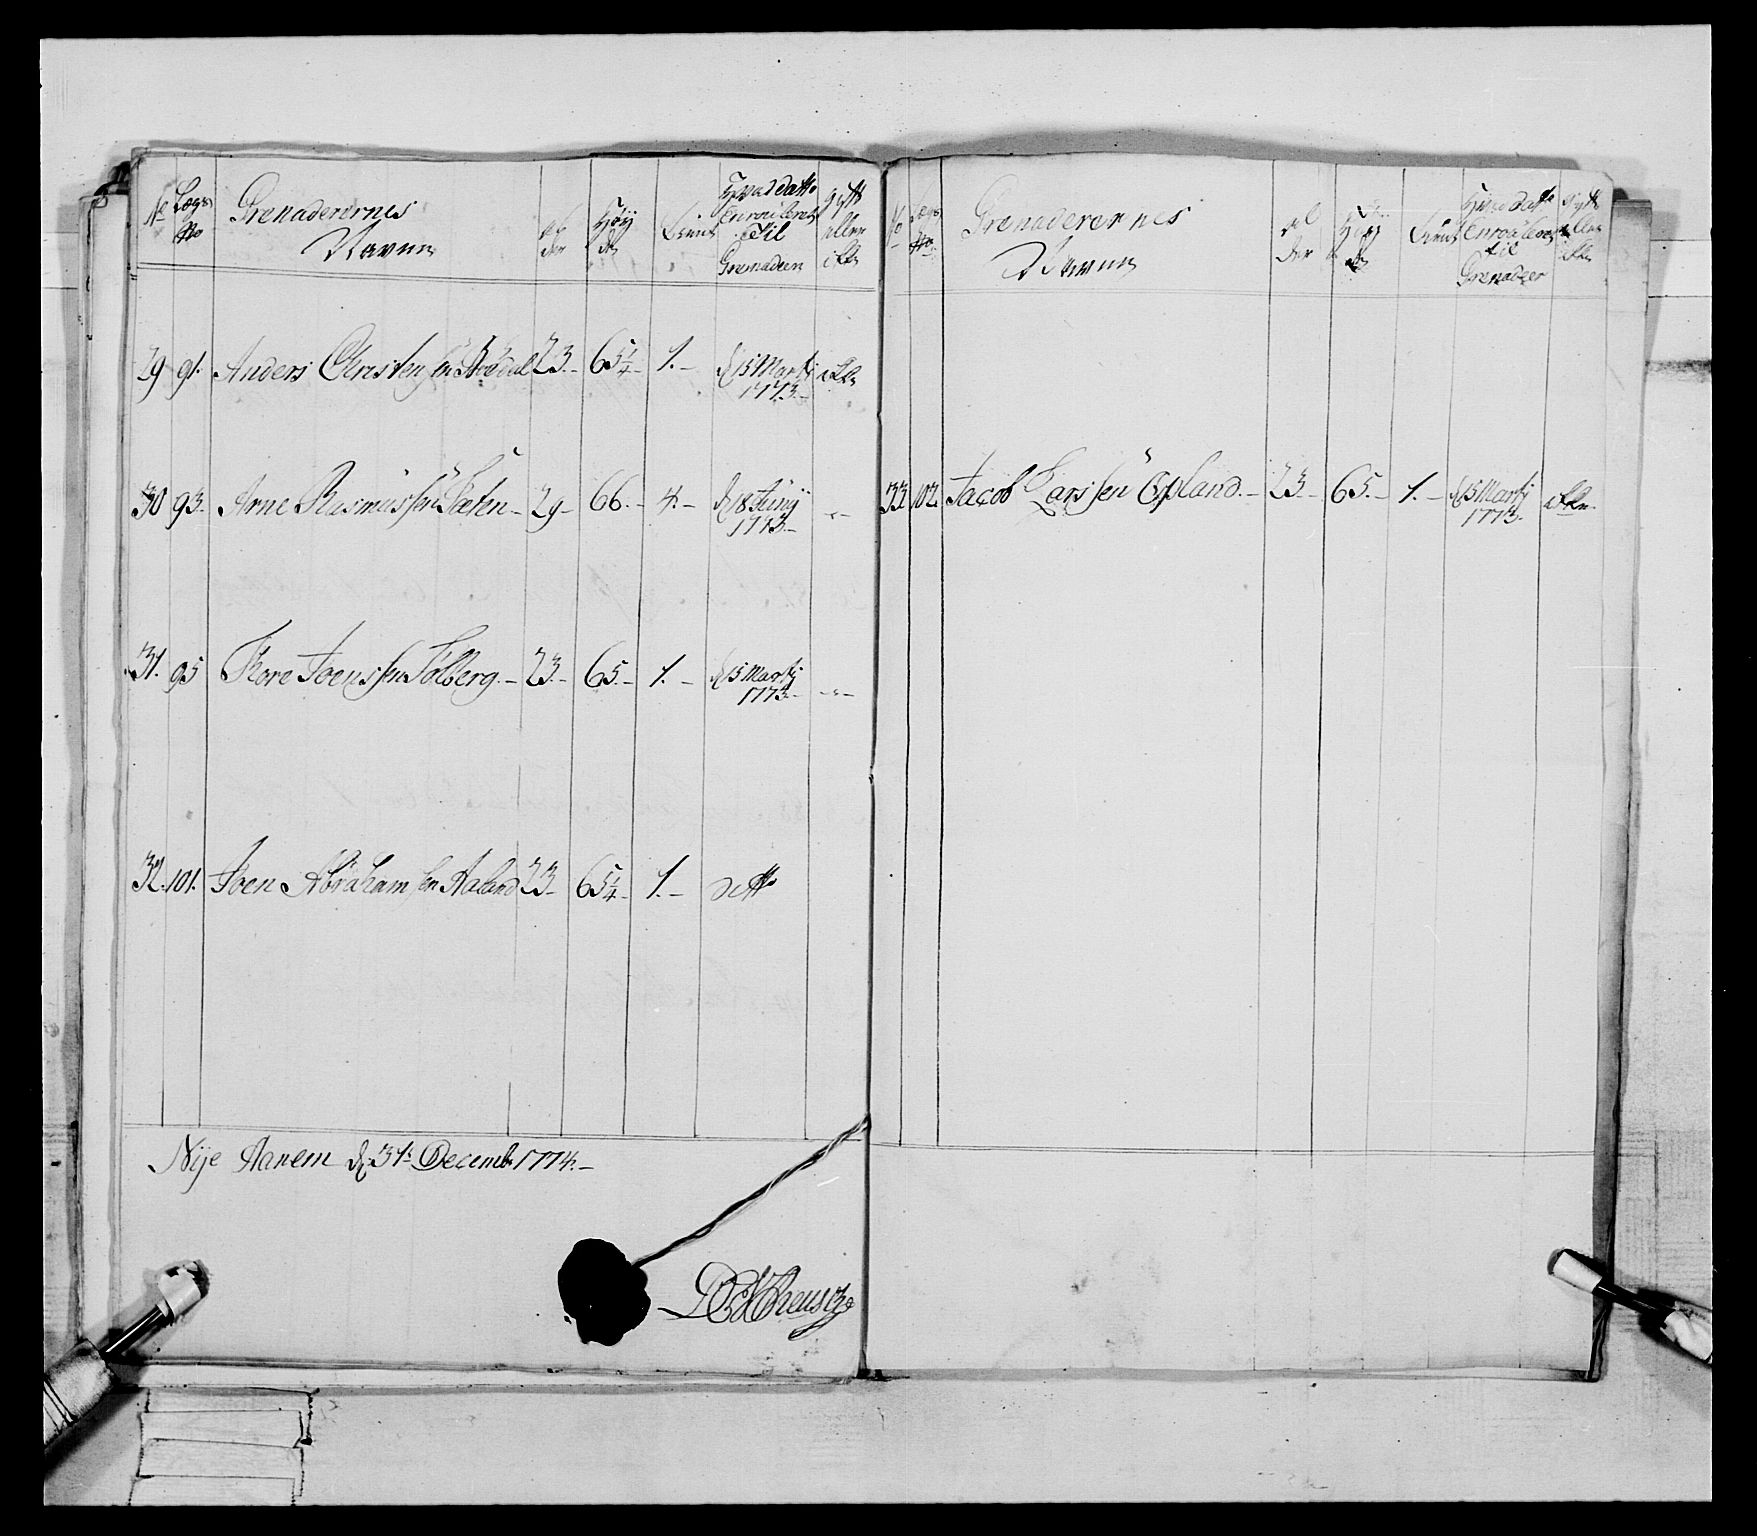 No Lægs No Grenaderernes Navne al der Høy de tient Hvad datto Enroulleret til Grenadeer gyft eller ikke
29 91. Anders Christensen 23.- 65¼- 1.- d 15 Martj 1773.- ikke
30 93. Arne Rasmussen Sæten- 29- 66.- 4.- d 18 Junij 1773.- -"-
31. 95 Tore Joenssen Solberg.- 23.- 65.- 1.- d 15 Martj 1773.- -"-
32. 101. Joen Abrahamsen Aaland 23- 65¼- 1.- ditto
Nije Aanem d. 31t Decembr 1774.-
No Lægs No Grenaderernes Navne al der Høy de tient Hvad datto Enrouleret til Grenadeer gyft eller ikke
33. 102. Jacob Larssen Opland.- 23.- 65.- 1.- d 15 Martj 1773.- ikke